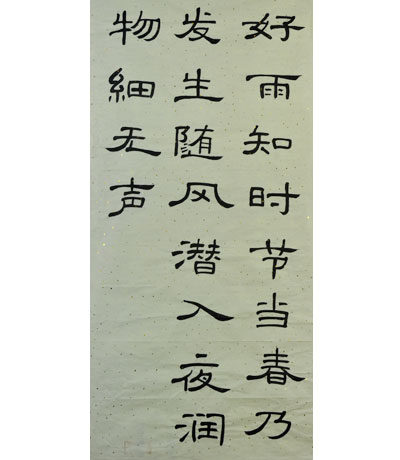 好雨知时节当春乃
发生随风潜入夜润
物細无声